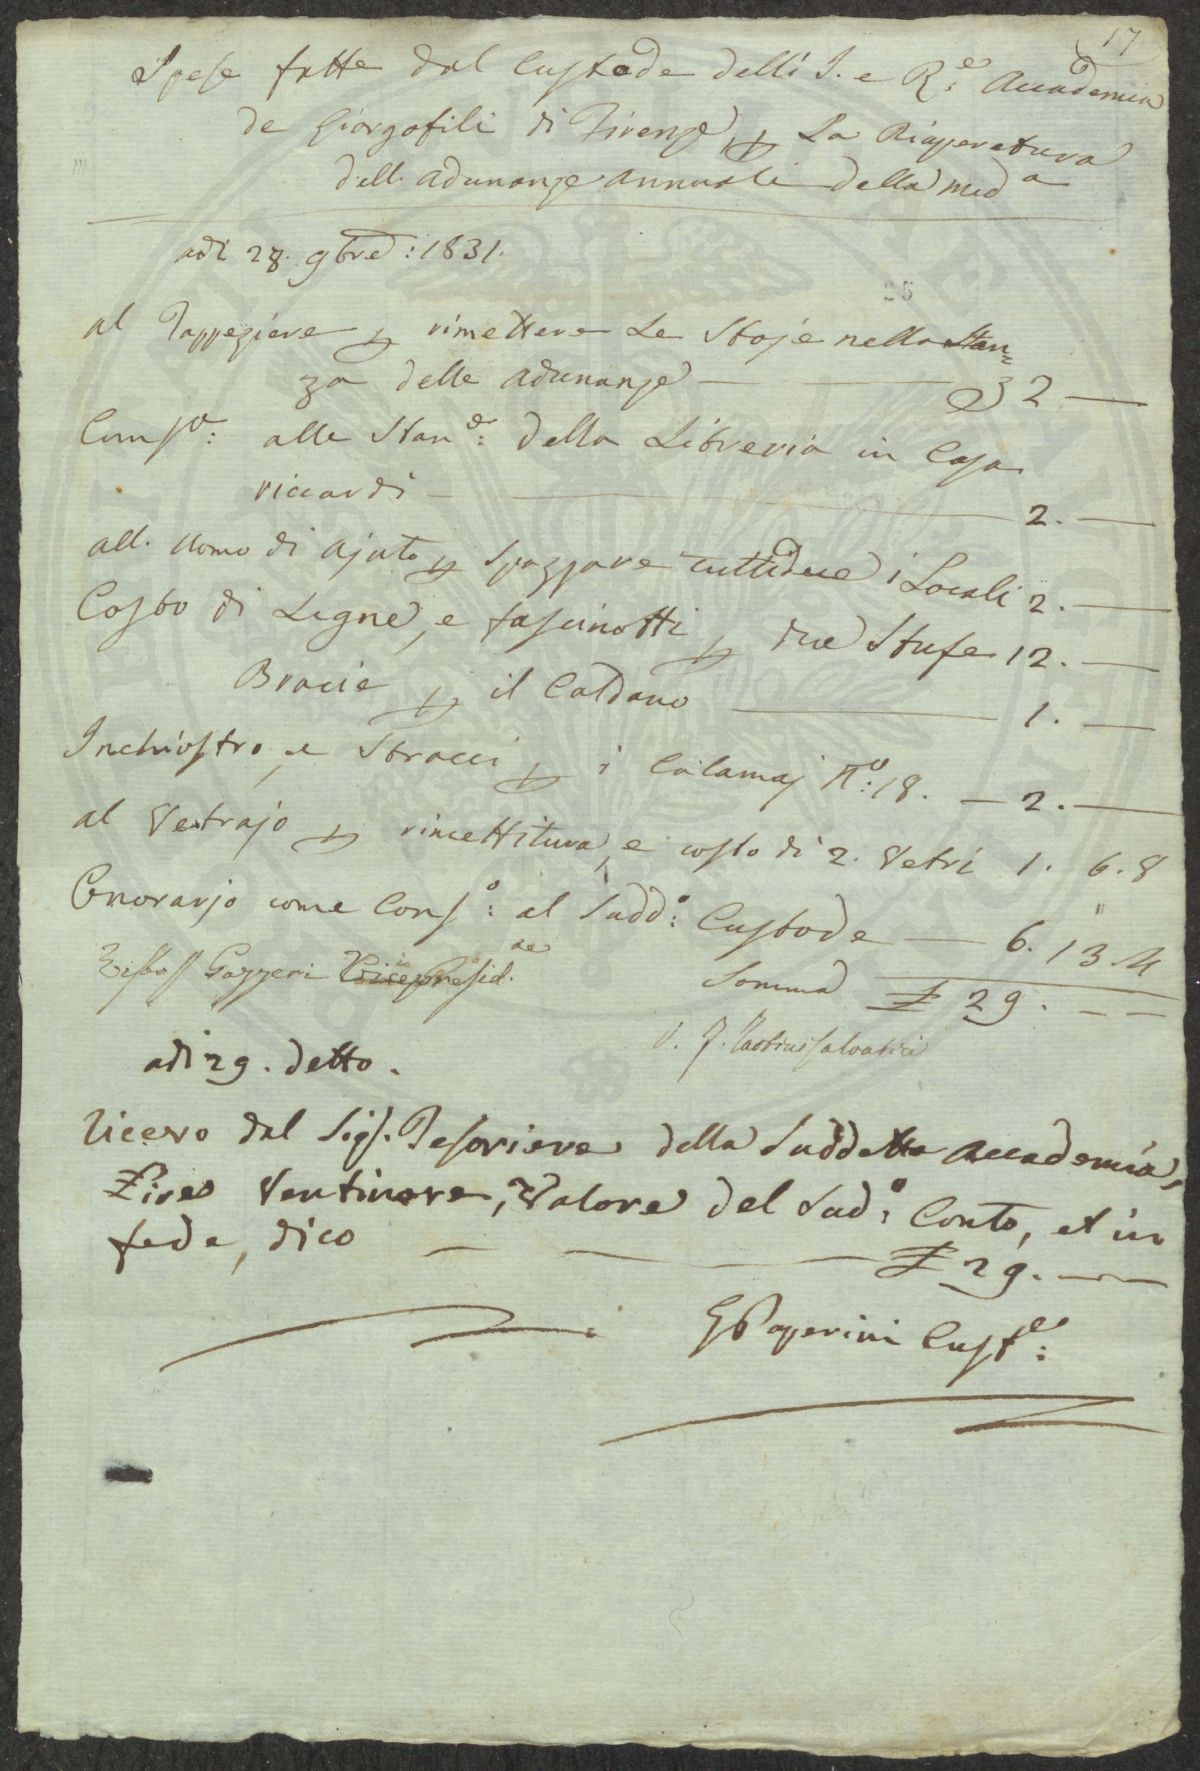 17
Spese fatte dal Custode delli I. e R.e Accademia
de Giorgofili di Firenze p La Riapertura
dell. adunanze annuali della med.a
adi 28. 9bre: 1831.
25
al Tappeziere p rimettere Le Stoje nella Stan=
za delle adunanze — 2 —
Comp.e: alle Stanz.e: della Libreria in Casa
riccardi — 2. —
all. uomo di ajuto p Spazzare tuttidue i Locali 2. —
Costo di Legne, e fascinotti p due Stufe 12. —
Bracie p il Caldano — 1. —
Inchiostro, e Stracci p i Calamaj N.o: 18. — 2. —
al Vetrajo p rimettitura, e costo di 2. Vetri 1. 6. 8
Onorarjo come Cons.o: al Sudd.o: Custode — 6. 13. 4
Gazzeri Vicepresid.te
Somma £ 29. — —
V. F. Tartini Salvatici
adi 29. detto.
Ricevo dal Sig. Tesoriere della Suddetta Accademia,
Lire Ventinove, Valore del Sud.o: Conto, et in
fede, dico — £ 29. —
G Paperini Cust.e: